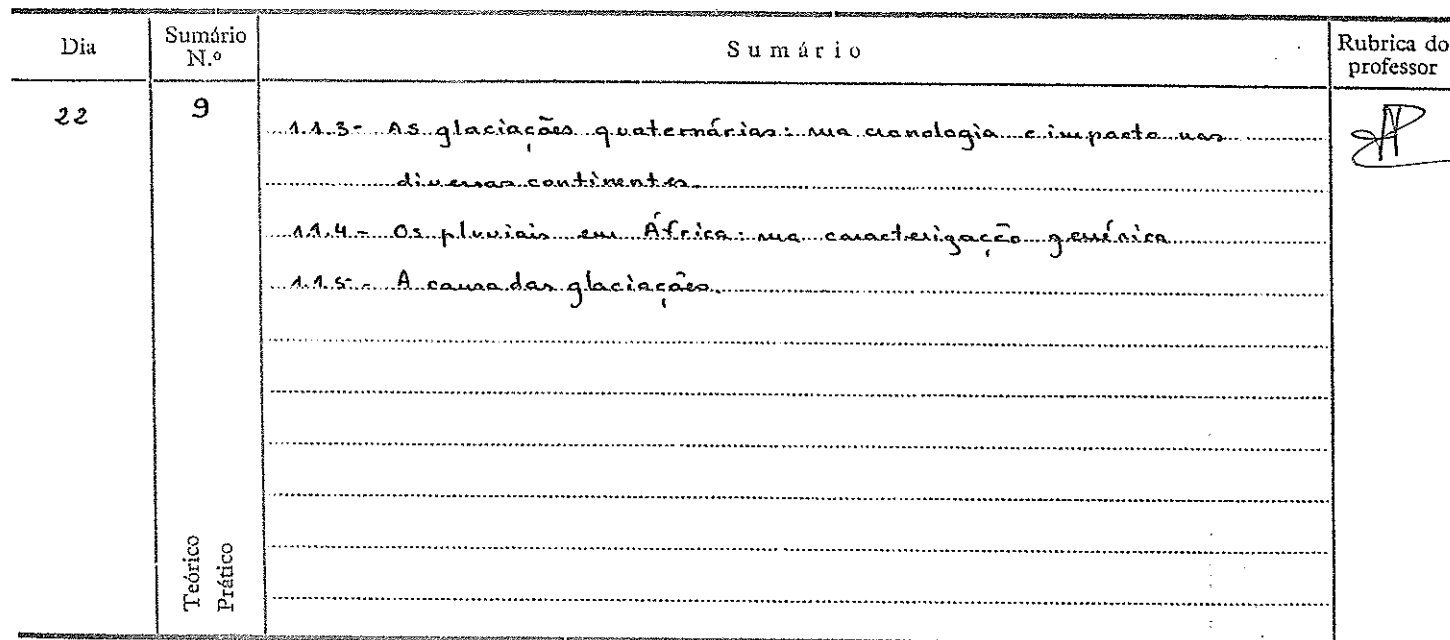 Dia Sumário N.º Sumário Rubrica do professor
22 9
1.1.3- As glaciações quaternárias: sua cronologia e impacto nos
diversos continentes.
1.1.4- Os pluviais em África: sua caracterização genérica
1.1.5- A causa das glaciações.
Teórico
Prático